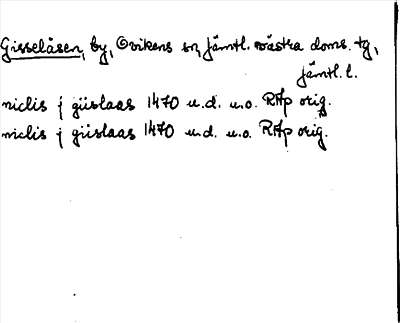 Gisselåsen, by, Ovikens sn, Jämtl. västra doms. tg,
Jämtl. l.
niclis j giislaas 1470 u.d. u.o. RAp orig.
niclis j giislaas 1470 u.d. u.o. RAp orig.